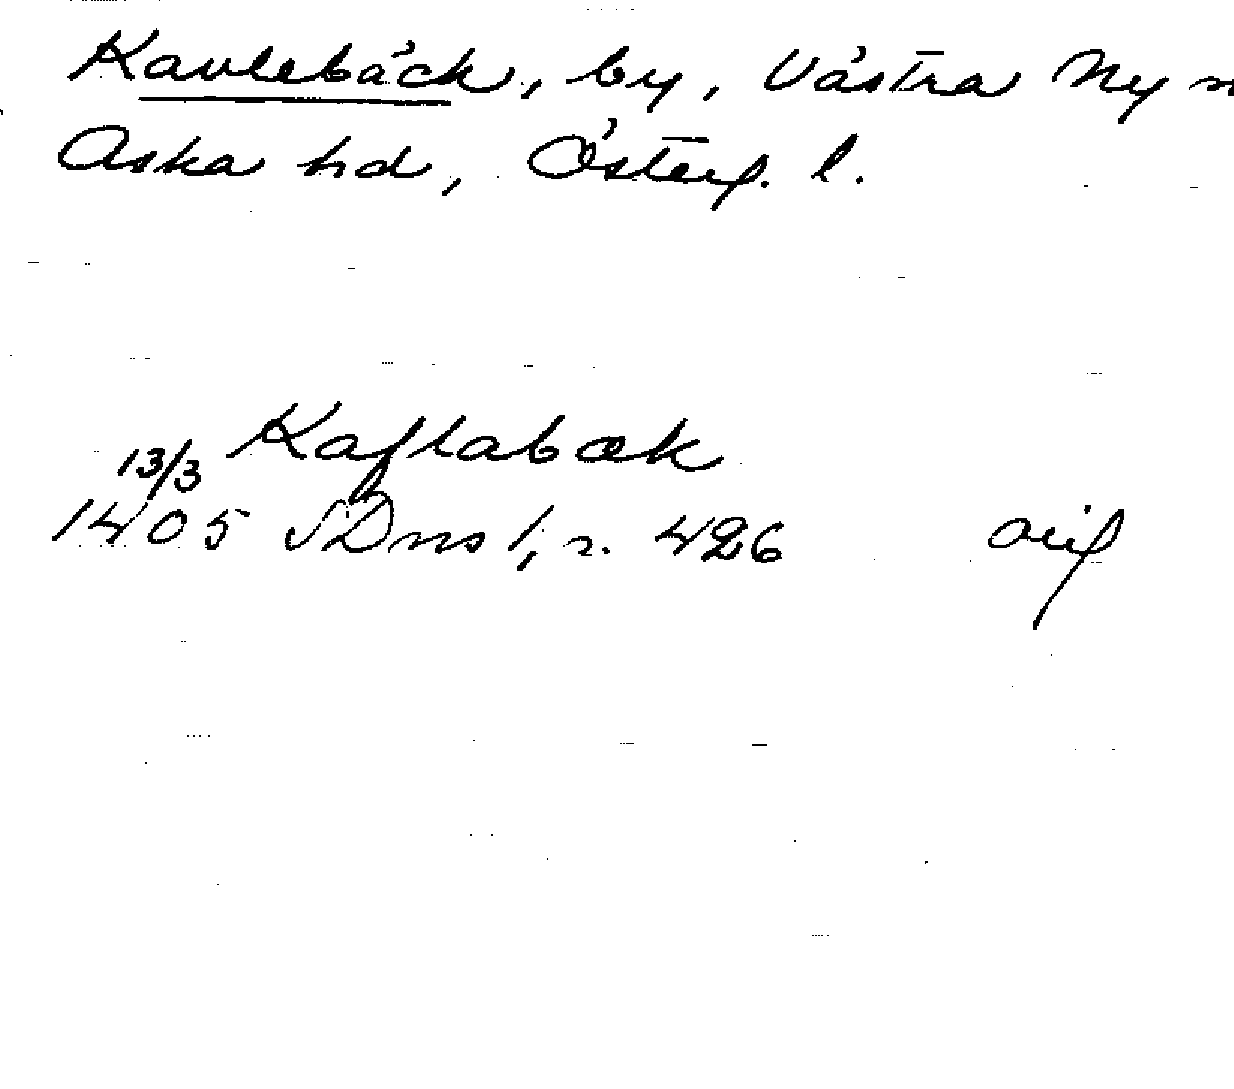 Kavlebäck, by, Västra Ny
Aska hd, Österg. l.
Kaflabæk
13/3
1405 SDns 1, s. 426 orig